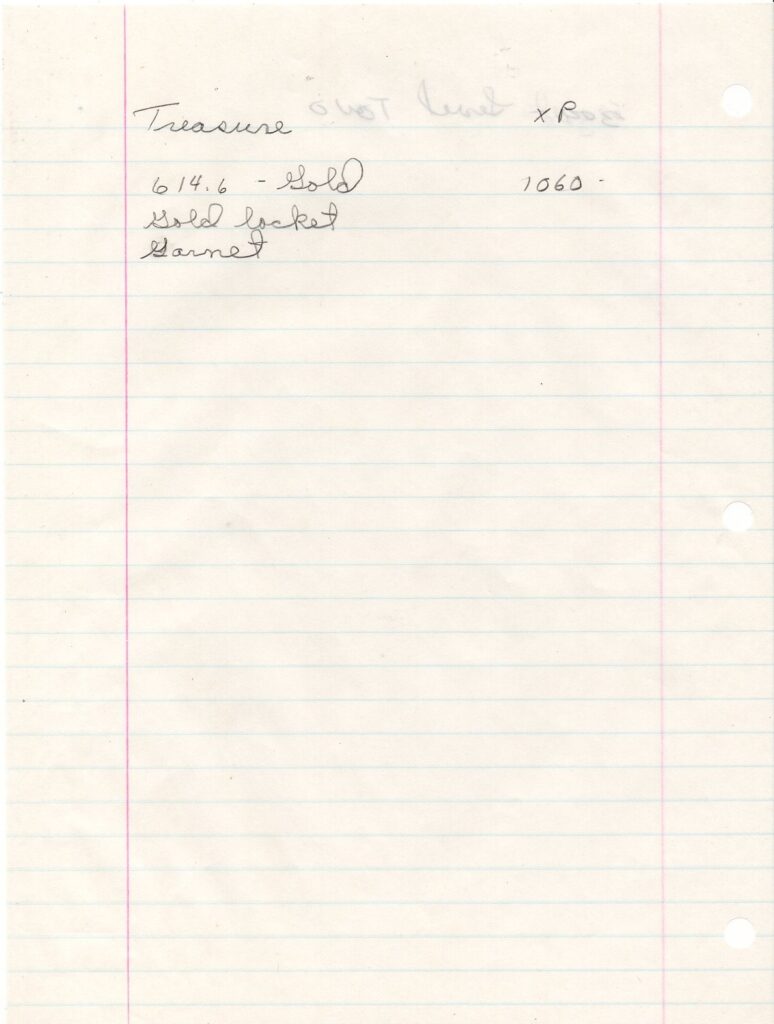 Treasure XP
614.6 - Gold 1060 -
Gold locket
Garnet